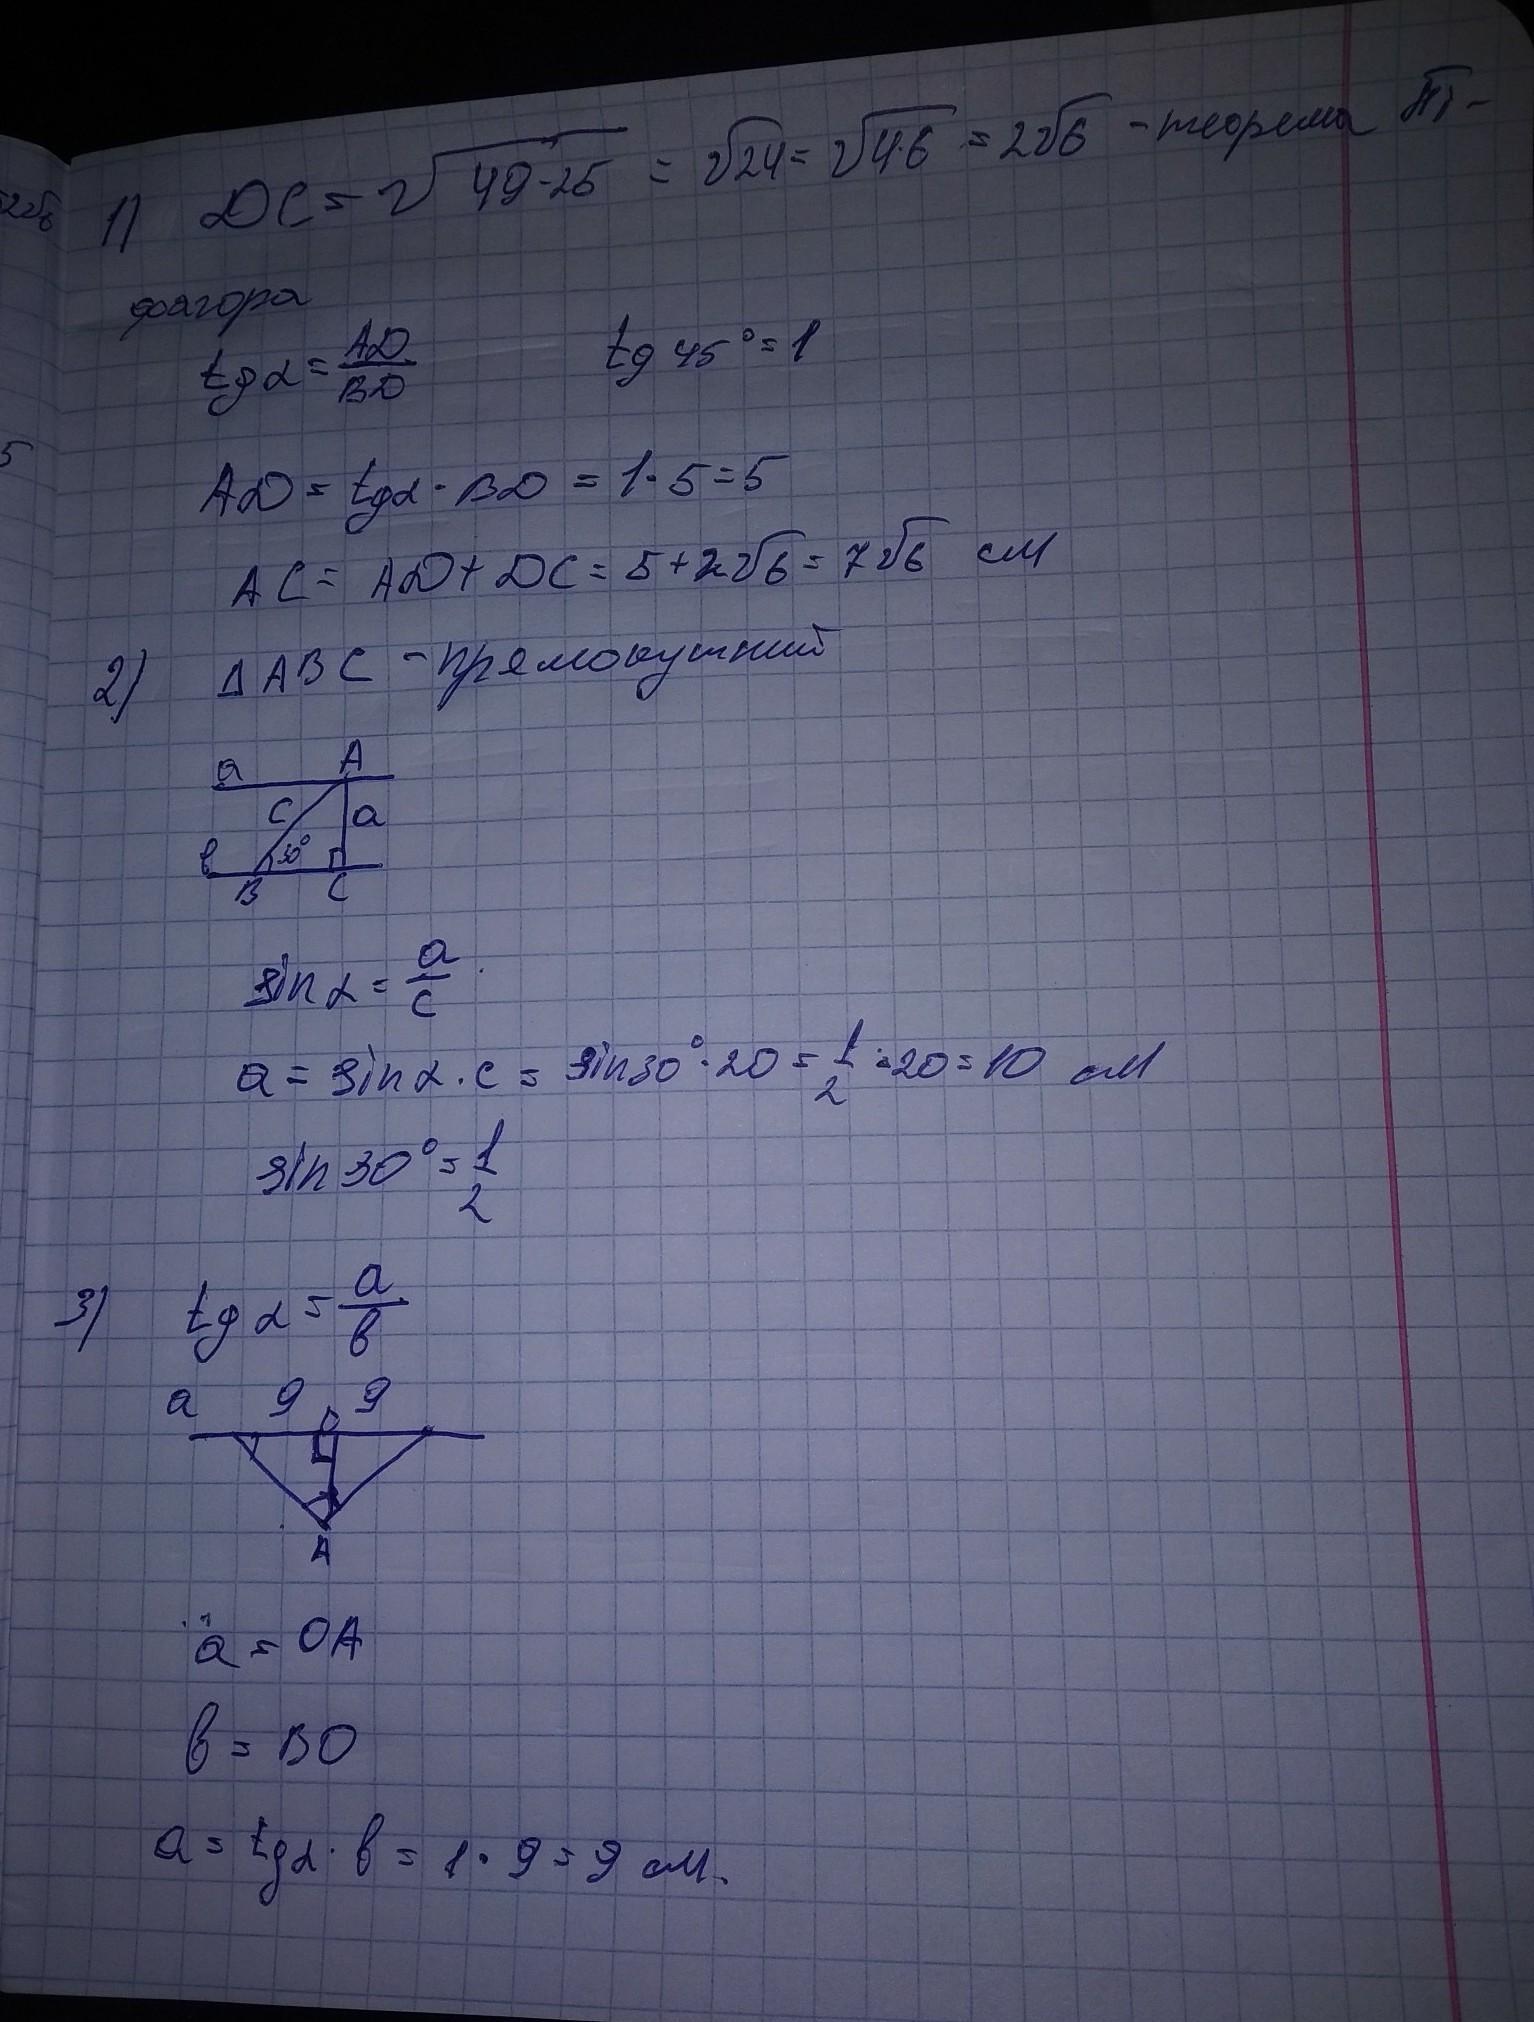 =2√6
1) DC = √49-25 = √24 = √4·6 = 2√6 - теорема Пі-
фагора
tg α = AD/BD tg 45° = 1
5
AD = tg α · BD = 1 · 5 = 5
AC = AD + DC = 5 + 2√6 = 7√6 см
2) Δ ABC - прямокутний
a A
C a
в 30°
B C
sin α = a/c
a = sin α · c = sin 30° · 20 = 1/2 · 20 = 10 см
sin 30° = 1/2
3) tg α = a/в
a 9 9
O
A
a = OA
в = BO
a = tg α · в = 1 · 9 = 9 см.